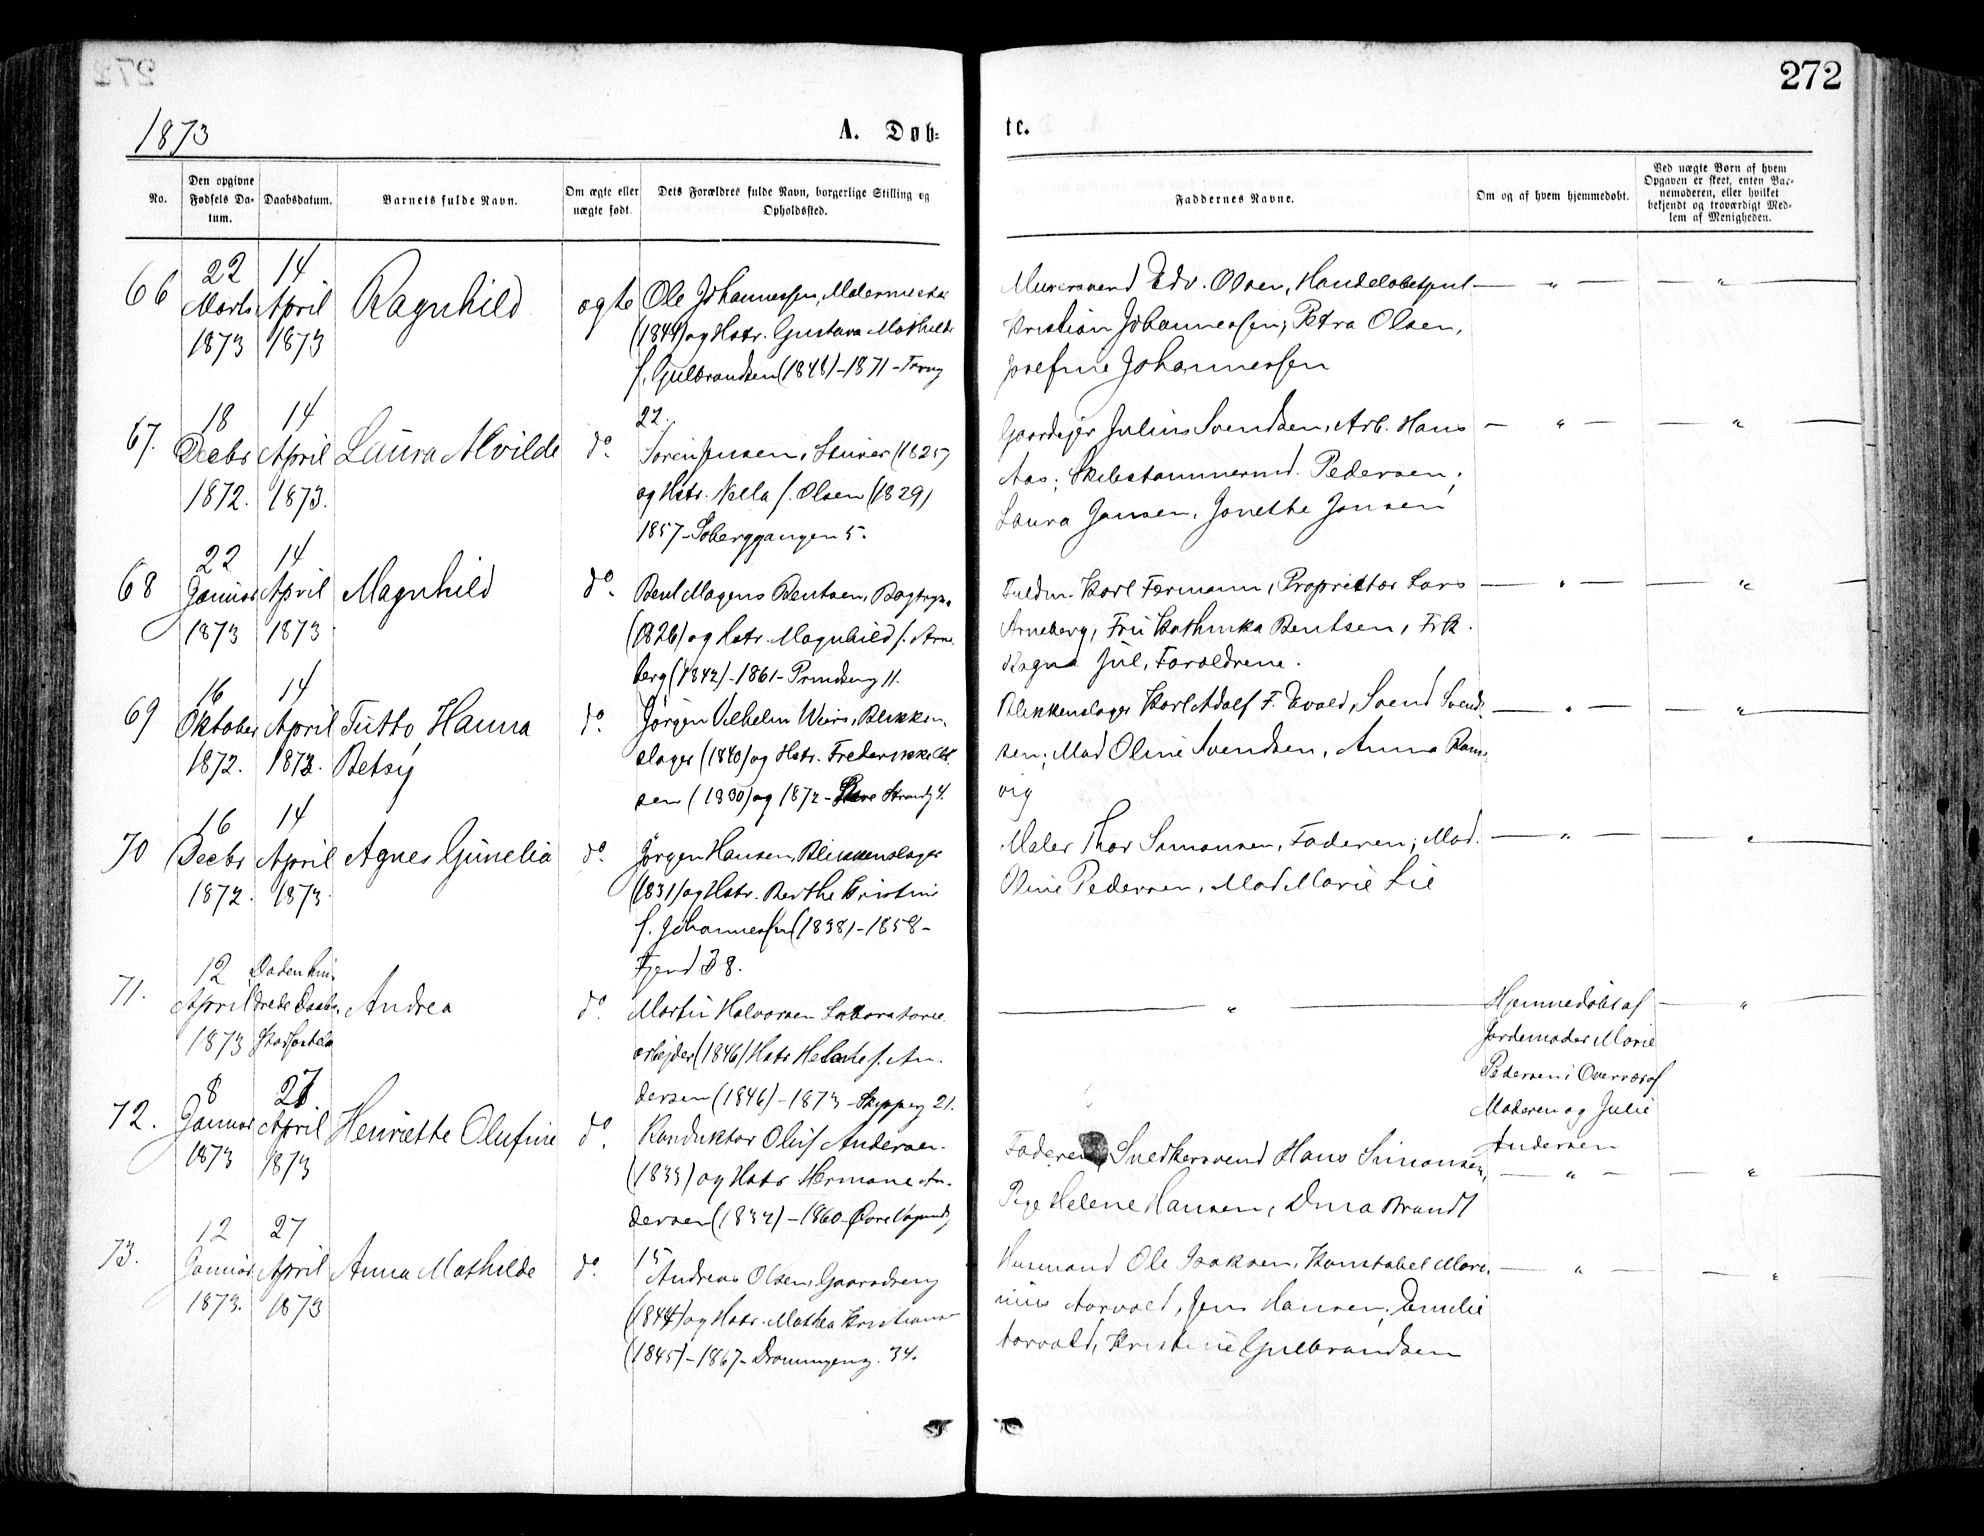 272
1873
A. Døb-
te.
No.
Den opgivne Fødsels Da-tum.
Daabsdatum.
Barnets fulde Navn.
Om ægte eller uægte født.
Dets Forældres fulde Navn, borgerlige Stilling og Opholdssted.
Faddernes Navne.
Om og af hvem hjemmedøbt.
Ved uægte Børn af hvem Opgaven er skeet, enten Bar-nemoderen, eller hvilket bekjendt og troværdigt Med-lem af Menigheden.
66
22 Marts 1873
14 April 1873
Ragnhild
ægte
Ole Johannessen, Malermester
(1844) og Hstr. Gustava Mathilde
f. Gulbrandsen (1848) - 1871 - Torvg
22.
Murersvend Edv. Olsen, Handelsbetjent
Kristian Johannessen; Petra Olsen,
Josefine Johannessen
67.
18 Decbr 1872.
14 April 1873.
Laura Alvilde
do.
Søren Jensen, Sliurer (1825)
og Hstr. Nella f. Olsen (1829)
1857 - Søberggangen 5.
Gaardejer Julius Svendsen, Arb. Hans
Aas; Skibstømmermd. Pedersen;
Laura Jansen, Janethe Jansen
68
22 Januar 1873
14 April 1873
Magnhild
do.
Bent Magens Bentsen, Bogtryk.
(1826) og Hstr. Magnhild f. Arne-
berg (1842) - 1861 - Prindseng 11.
Fuldm. Karl Fermann, Proprietær Lars
Arneberg, Fru Kathinka Bentsen, Frk.
Ragna Jul, Forældrene.
69
16 Oktober 1872.
14 April 1873.
Tutto Hanna
Betsy
do.
Jørgen Vilhelm Weirs, Blikken-
slager (1840) og Hstr. Frederikke Ol
sen (1830) og 1872 - Store Strandg 4.
Blikkenslager Karl Adolf F. Evald, Svend Svend-
sen; Mad Oline Svendsen, Anna Rams-
vig
70
16 Decbr 1872.
14 April 1873.
Agnes Gunelia
do.
Jørgen Hansen, Blikkenslager
(1831) og Hstr. Berthe Kristine
f. Johannessen (1838) - 1858 -
Fjerd 38.
Maler Thor Simonsen, Faderen; Mad.
Oline Pedersen, Mad Marie Lie
71.
12 April 1873
Døden hin-
drede Daabs.
Andrea
do.
Martin Halvorsen Laboratorie
arbejder (1846) Hstr Helene f. An-
dersen (1846) - 1873 - Skipperg 21.
Hjemmedøbt af
Jordemoder Marie
Pedersen i Overvær af
Moderen og Julie
Andersen
72.
8 Januar 1873
27 April 1873
Henriette Olufine
do.
Konduktør Oluf Andersen
(1833) og Hstr Hermane An-
dersen (1832) - 1860 - Øvre Vognmdg
15
Faderen, Snedkersvend Hans Simonsen,
Pige Helene Hansen, Dina Brandt
73.
12 Januar 1873.
27 April 1873
Anna Mathilde
do.
Andreas Olsen, Gaardreng
(1844) og Hstr. Mathea Kristians
(1845) - 1867 - Dronningeng. 34.
Husmand Ole Isaksen, Konstabel Mari-
nius Aarvold, Jens Hansen; Emilie
Aarvold, Kristine Gulbrandsen